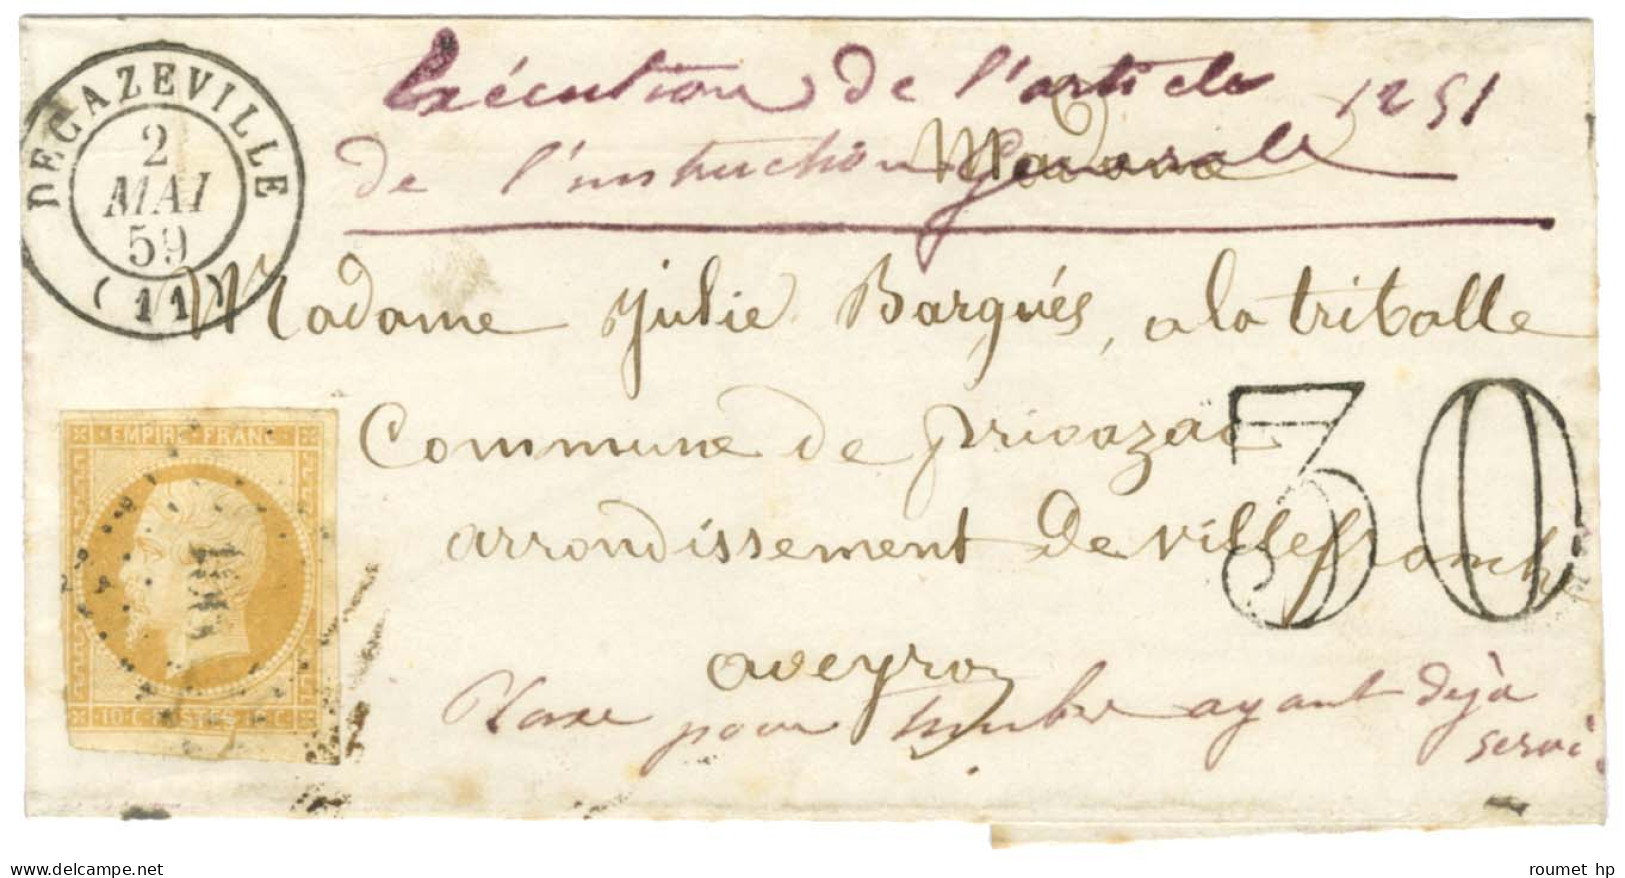 DECAZEVILLE
2
MAI
59
(11)
Exécution de l'article 1251
de l'instruction Generale
Madame
Madame Julie Barqués, a la triballe
Commune de privazac
arrondissement de villefranch
aveyron
30
EMPIRE FRANC
10 C. POSTES 10 C
Taxe pour timbre ayant dejà
servi.
delcampe.net
roumet hp